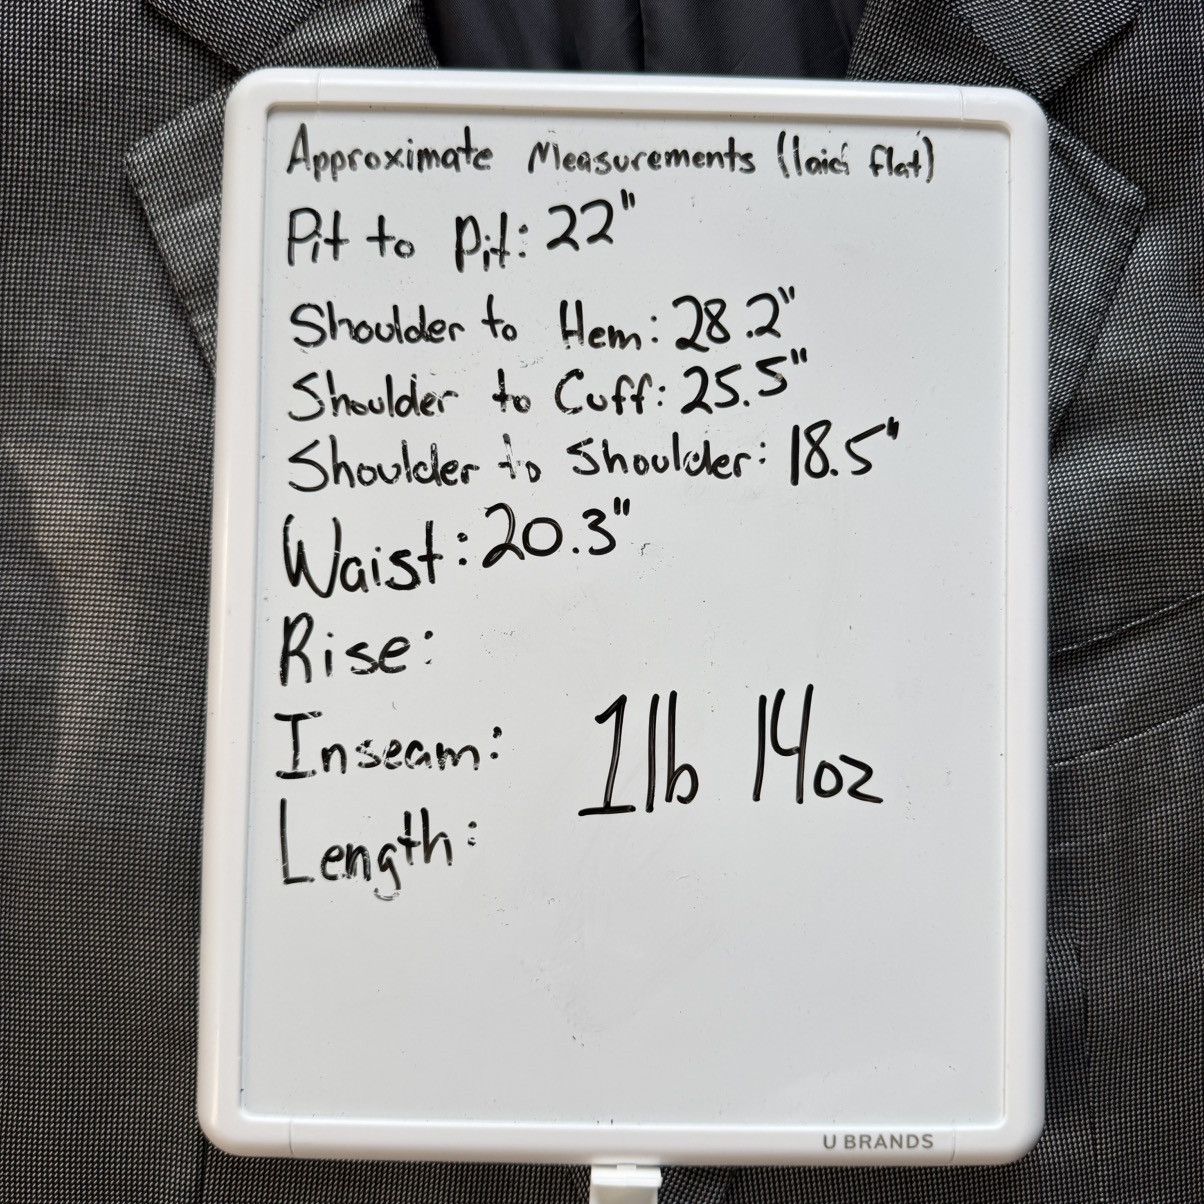 Approximate Measurements (laid flat)
Pit to Pit: 22"
Shoulder to Hem: 28.2"
Shoulder to Cuff: 25.5"
Shoulder to Shoulder: 18.5"
Waist: 20.3"
Rise:
Inseam:
1lb 14oz
Length:
U BRANDS